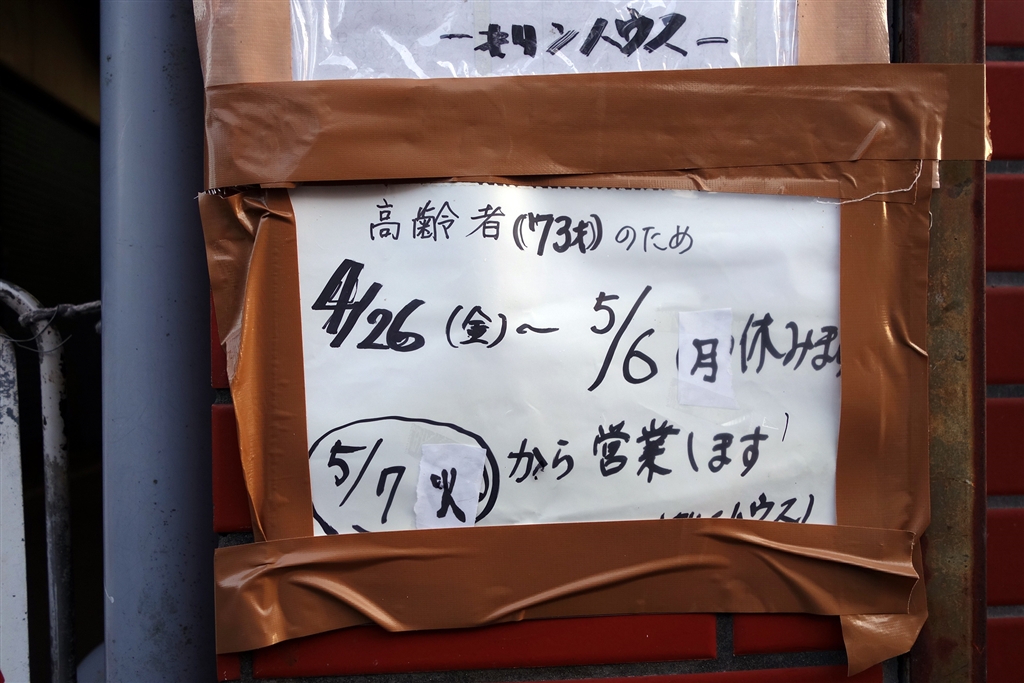 ーキリンハウスー
高齢者(73才)のため
4/26(金)〜5/6(月)休みます
5/7火から営業します
ハウス)